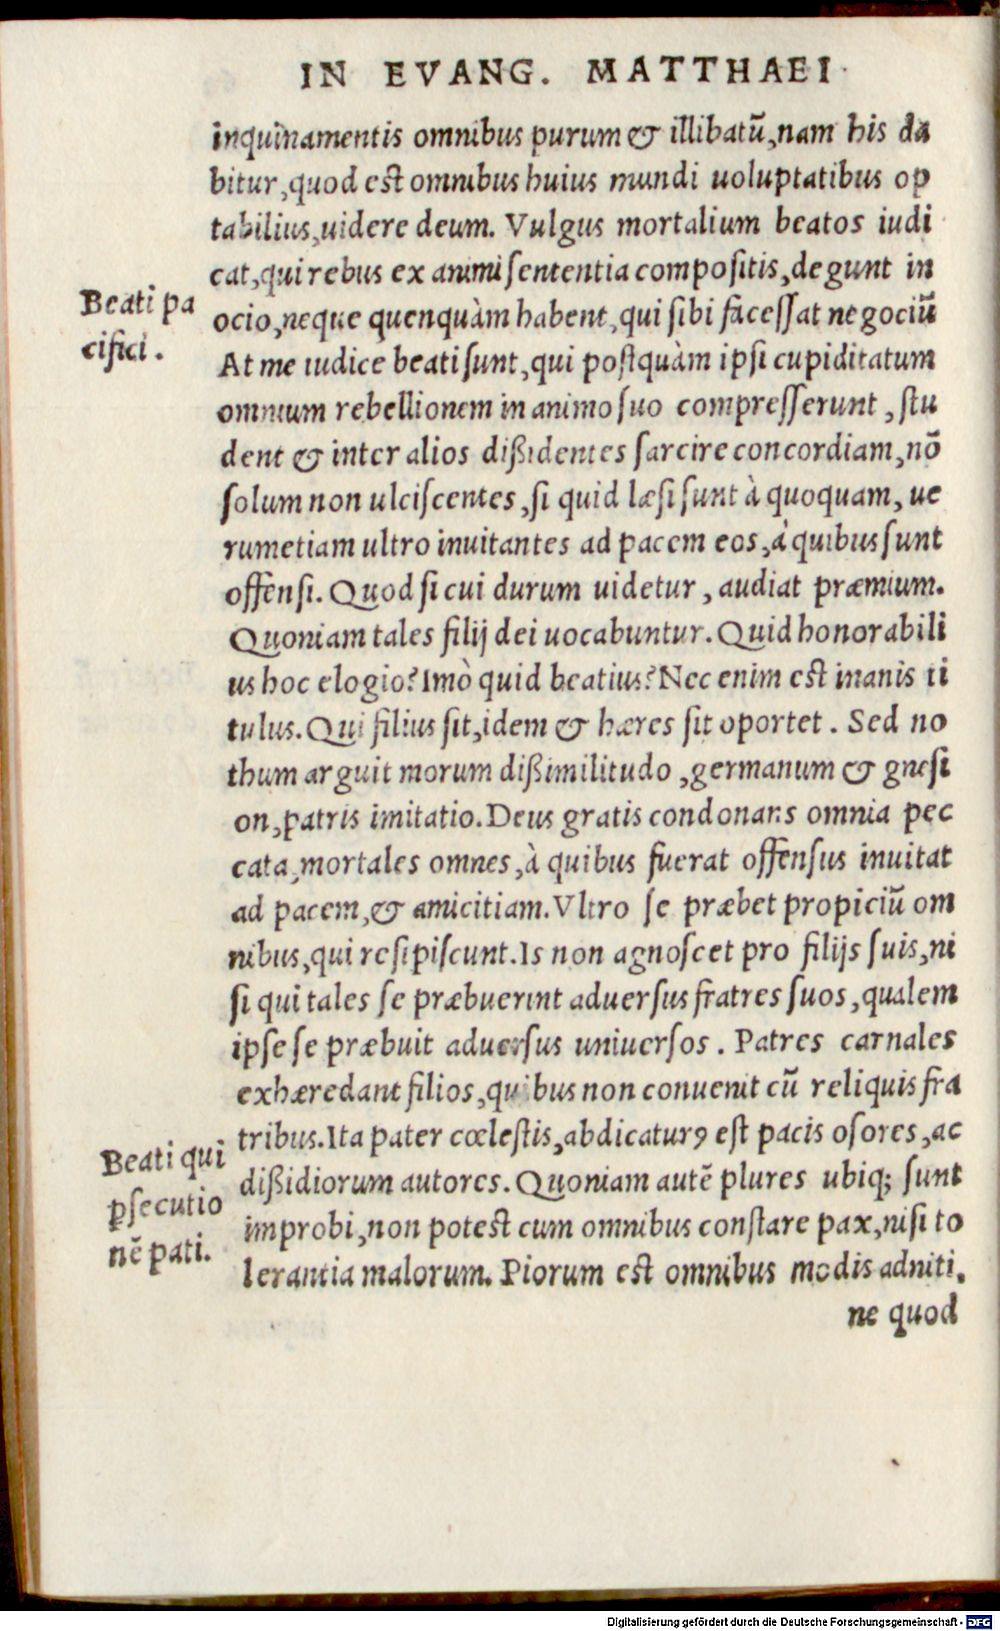 IN EVANG. MATTHAEI
inquinamentis omnibus purum & illibatū, nam his da
bitur, quod est omnibus huius mundi uoluptatibus op
tabilius, uidere deum. Vulgus mortalium beatos iudi
cat, qui rebus ex animi sententia compositis, degunt in
Beati pa
cifici.
ocio, neque quenquàm habent, qui sibi facessat negociū
At me iudice beati sunt, qui postquàm ipsi cupiditatum
omnium rebellionem in animo suo compresserunt, stu
dent & inter alios dißidentes sarcire concordiam, nō
solum non ulciscentes, si quid læsi sunt à quoquam, ue
rumetiam ultro inuitantes ad pacem eos, à quibus sunt
offensi. Quod si cui durum uidetur, audiat præmium.
Quoniam tales filij dei uocabuntur. Quid honorabili
us hoc elogio? Imò quid beatius? Nec enim est inanis ti
tulus. Qui filius sit, idem & hæres sit oportet. Sed no
thum arguit morum dißimilitudo, germanum & gnesi
on, patris imitatio. Deus gratis condonans omnia pec
cata, mortales omnes, à quibus fuerat offensus inuitat
ad pacem, & amicitiam. Vltro se præbet propiciū om
nibus, qui resipiscunt. Is non agnoscet pro filijs suis, ni
si qui tales se præbuerint aduersus fratres suos, qualem
ipse se præbuit aduersus uniuersos. Patres carnales
exhæredant filios, quibus non conuenit cū reliquis fra
tribus. Ita pater cœlestis, abdicaturꝰ est pacis osores, ac
Beati qui
ꝑsecutio
nē pati.
dißidiorum autores. Quoniam autē plures ubiq; sunt
improbi, non potest cum omnibus constare pax, nisi to
lerantia malorum. Piorum est omnibus modis adniti,
ne quod
Digitalisierung gefördert durch die Deutsche Forschungsgemeinschaft - DFG